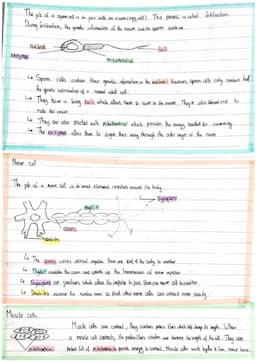 The job of a sperm cell is to join with an ovum (egg cell). This process is called fertilisation.
During fertilisation, the genetic information of the ovum and the sperm combine.
nucleus
tail
enzymes
mitochondria
↳ Sperm cells contain their genetic information in the nucleus. However, sperm cells only contain half
the genetic information of a normal adult cell.
↳ They have a long tail which allows them to swim to the ovum. They're also streamlined to
make this easier.
↳ They are also packed with mitochondria which provides the energy needed for swimming.
↳ The enzymes allow them to digest their way through the outer layer of the ovum.
Nerve cell
The job of a nerve cell is to send electrical impulses around the body.
synapses
myelin
axon
dendrites
↳ The axon carries electrical impulses from one part of the body to another.
↳ Myelin insulates the axon and speeds up the transmission of nerve impulses.
↳ Synapses are junctions which allow the impulse to pass from one nerve cell to another.
↳ Dendrites increase the surface area so that other nerve cells can connect more easily.
Muscle cells
Muscle cells can contract, they contain protein fibres which
a muscle cell contracts, the protein fibres shorten and decrease the length of the cell. They are
mitochondria